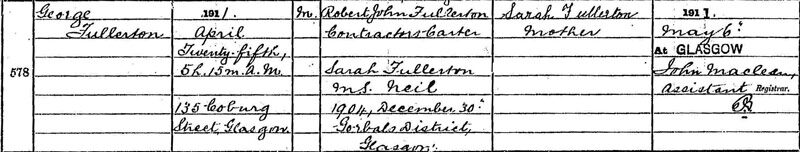 578
George
Fullerton
1911.
April
Twenty-fifth,
5h. 15m. A.M.
135 Coburg
Street, Glasgow.
M.
Robert John Fullerton
Contractor's Carter
Sarah Fullerton
M.S. Neil
1904, December 30th
Gorbals District,
Glasgow.
Sarah Fullerton
Mother
1911.
May 6th
At GLASGOW
John Maclean,
Assistant Registrar.